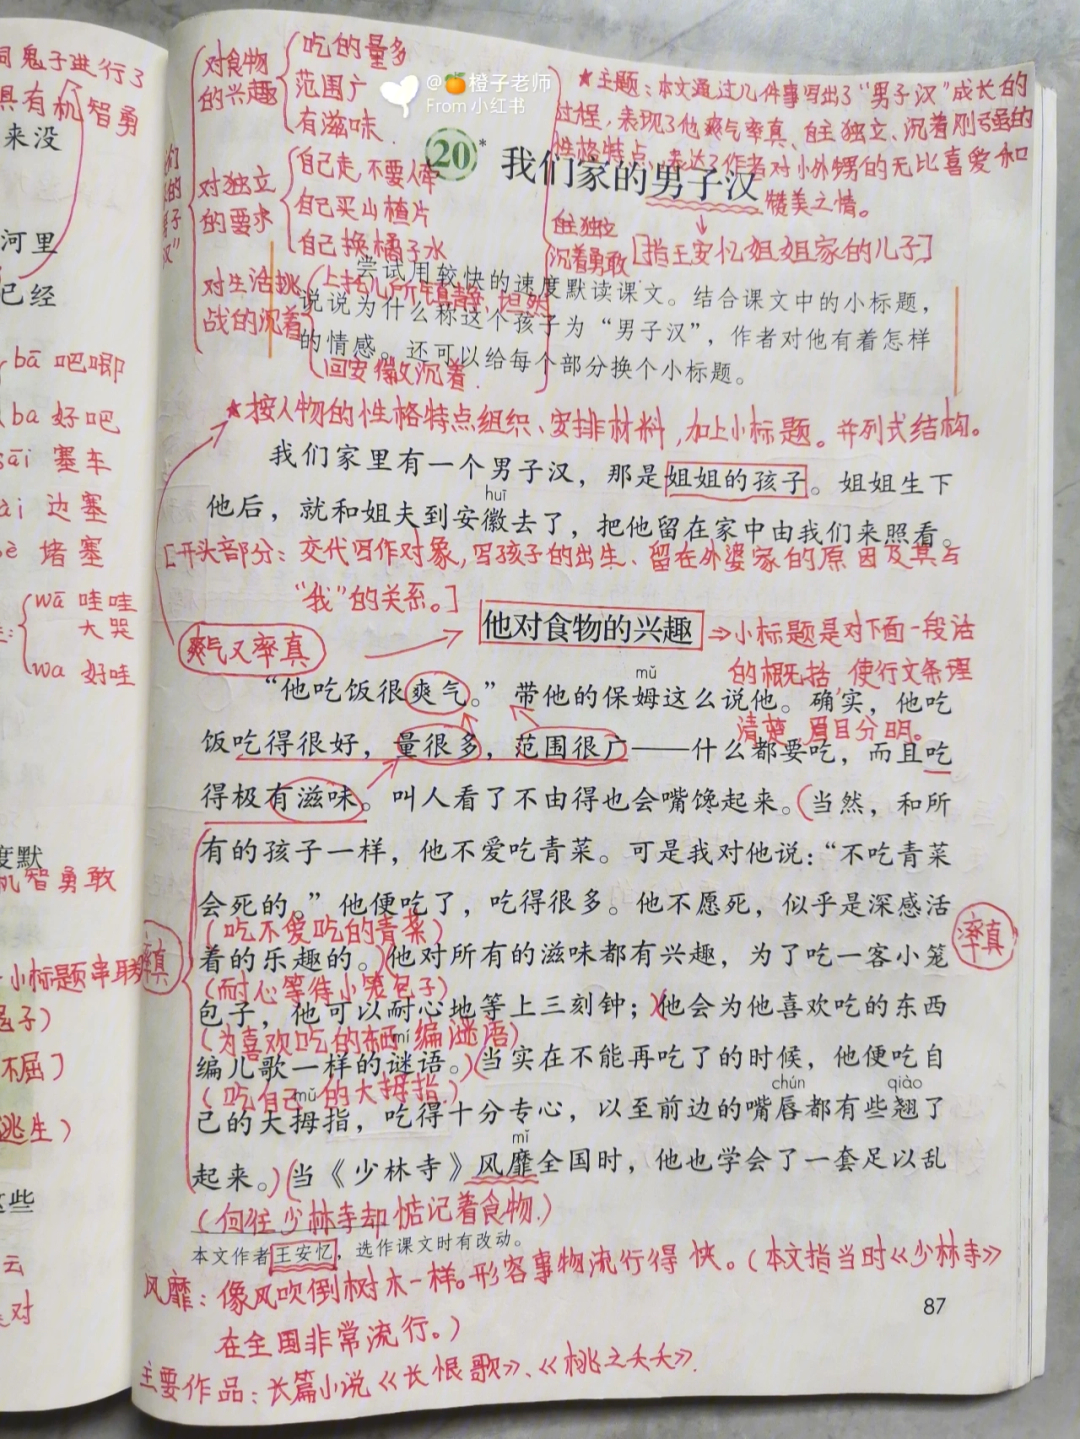 司鬼子进行了
具有机智勇
来没
河里
已经
bā 吧唧
ba 好吧
sāi 塞车
ài 边塞
堵塞
wā 哇哇
大哭
wa 好哇
度默
机智勇敢
小标题串联
不屈）
逃生）
些
云
对
对食物的兴趣
吃的量多
范围广
有滋味
对独立的要求
自己走，不要人牵
自己买山楂片
自己换橘子水
对生活挑战的沉着
上托儿所
回安徽沉着
自主独立
沉着勇敢
@🍊橙子老师
From 小红书
★主题：本文通过几件事写出了“男子汉”成长的
过程，表现了他爽气率真、自主独立、沉着刚强的
性格特点，表达了作者对小外甥的无比喜爱和
赞美之情。
20* 我们家的男子汉
[指王安忆姐姐家的儿子]
尝试用较快的速度默读课文。结合课文中的小标题，
说说为什么称这个孩子为“男子汉”，作者对他有着怎样
的情感。还可以给每个部分换个小标题。
★按人物的性格特点组织、安排材料，加上小标题。并列式结构。
我们家里有一个男子汉，那是姐姐的孩子。姐姐生下
huī
他后，就和姐夫到安徽去了，把他留在家中由我们来照看。
[开头部分：交代写作对象，写孩子的出生、留在外婆家的原因及其与
“我”的关系。]
爽气又率真
他对食物的兴趣
⇒小标题是对下面一段话
的概括，使行文条理
清楚，眉目分明。
mǔ
“他吃饭很爽气。”带他的保姆这么说他。确实，他吃
饭吃得很好，量很多，范围很广——什么都要吃，而且吃
得极有滋味。叫人看了不由得也会嘴馋起来。（当然，和所
有的孩子一样，他不爱吃青菜。可是我对他说：“不吃青菜
会死的。”他便吃了，吃得很多。他不愿死，似乎是深感活
（吃不爱吃的青菜）
率真
率真
着的乐趣的。）他对所有的滋味都有兴趣，为了吃一客小笼
（耐心等待小笼包子）
包子，他可以耐心地等上三刻钟；）（他会为他喜欢吃的东西
（为喜欢吃的东西编谜语）
mí
编儿歌一样的谜语。）（当实在不能再吃了的时候，他便吃自
（吃自己的大拇指）
mǔ chún qiào
己的大拇指，吃得十分专心，以至前边的嘴唇都有些翘了
mǐ
起来。）（当《少林寺》风靡全国时，他也学会了一套足以乱
（向往少林寺却惦记着食物。）
本文作者王安忆，选作课文时有改动。
风靡：像风吹倒树木一样。形容事物流行得快。（本文指当时《少林寺》
在全国非常流行。）
87
主要作品：长篇小说《长恨歌》、《桃之夭夭》.